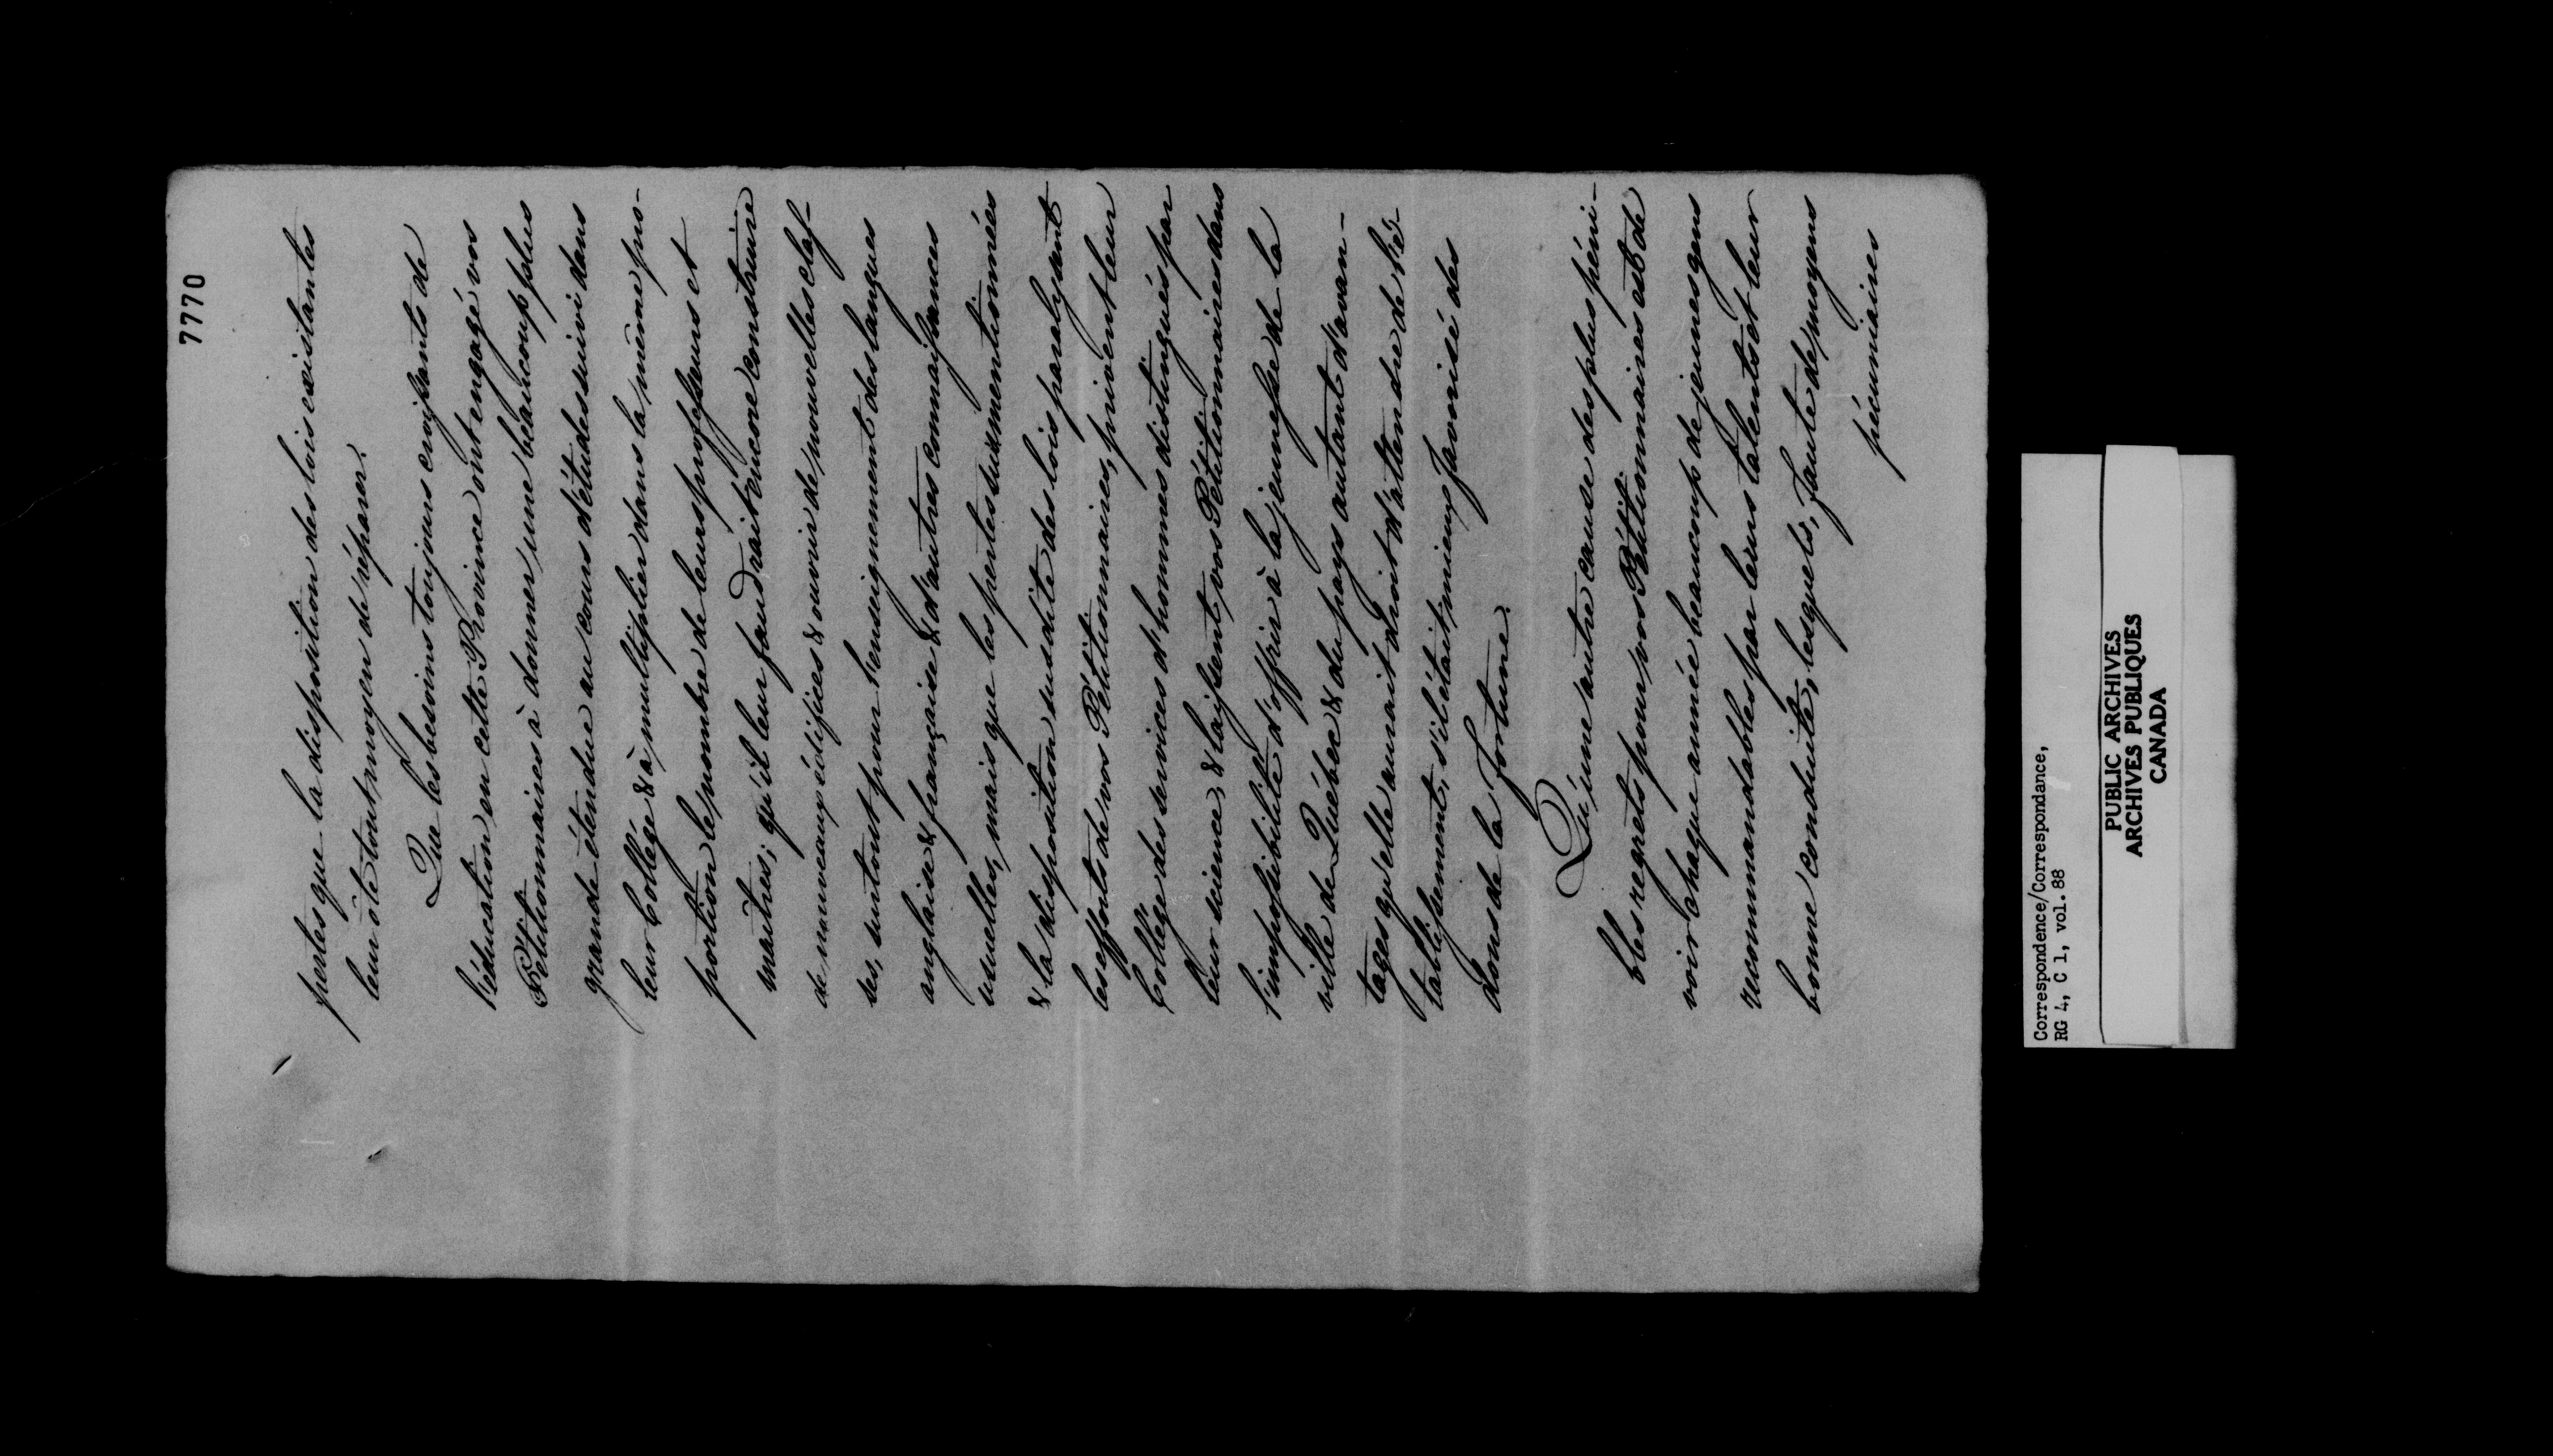 7770
pertes que la disposition des lois existantes
leur ôte tout moyen de réparer.
Que les besoins toujours croissants de
l'éducation en cette Province ont engagé vos
Pétitionnaires à donner une beaucoup plus
grande étendue au cours d'études suivi dans
leur Collége & à multiplier dans la même pro-
portion le nombre de leurs professeurs et
maîtres; qu'il leur faudrait encore construire
de nouveaux édifices & ouvrir de nouvelles clas-
ses, surtout pour l'enseignement des langues
anglaise & française & d'autres connaissances
usuelles, mais que les pertes susmentionnées
& la disposition susdite des lois paralysent
les efforts de vos Pétitionnaires, privent leur
Collége des services d'hommes distingués par
leur science, & laissent vos Pétitionnaires dans
l'impossibilité d'offrir à la jeunesse de la
ville de Québec & du pays autant d'avan-
tages qu'elle aurait droit d'attendre de l'é-
tablissement, s'il était mieux favorisé des
dons de la fortune.
Qu'une autre cause des plus péni-
bles regrets pour vos Pétitionnaires est de
voir chaque année beaucoup de jeunes gens
recommandables par leurs talents et leur
bonne conduite, lesquels, faute de moyens
pécuniaires
Correspondence/Correspondance,
RG 4, C 1, vol. 88
PUBLIC ARCHIVES
ARCHIVES PUBLIQUES
CANADA